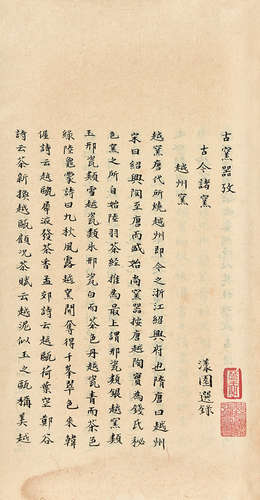 古窯器攷
漾園選錄
古今諸窯
越州窯
越窯唐代所燒越州即今之浙江紹興府也隋唐曰越州
宋曰紹興陶至唐而盛始尚窯器按唐越陶實為錢氏秘
色窯之所自始陸羽茶經推為最上謂邢瓷類銀越瓷類
玉邢瓷類雪越瓷類氷邢瓷白而茶色丹越瓷青而茶色
綠陸龜蒙詩曰九秋風露越窯開奪得千峯翠色來韓
偓詩云越甌犀液發茶香孟郊詩云越甌荷葉空鄭谷
詩云茶新換越甌顧况茶賦云越泥似玉之甌稱美越